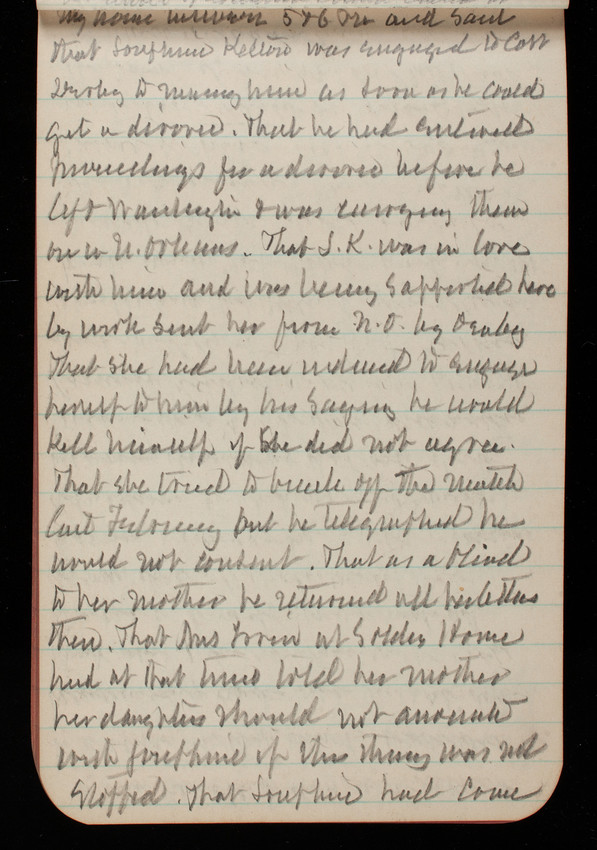 my house between 5 & 6 Pm and said
that Josephine Kelton was engaged to Capt
Derby to marry him as soon as he could
get a divorce. That he had entered
proceedings for a divorce before he
left Washington & was carrying them
on in N. Orleans. That J.K. was in love
with him and was being supported here
by work sent her from N.O. by Derby
That she had been induced to engage
herself to him by his saying he would
kill himself if she did not agree.
That she tried to break off the match
last February but he telegraphed he
would not consent. That as a blind
to her mother he returned all his letters
then. That Mrs at Soldiers Home
had at that time told her mother
her daughters should not associate
with Josephine if this thing was not
stopped. That Josephine had come